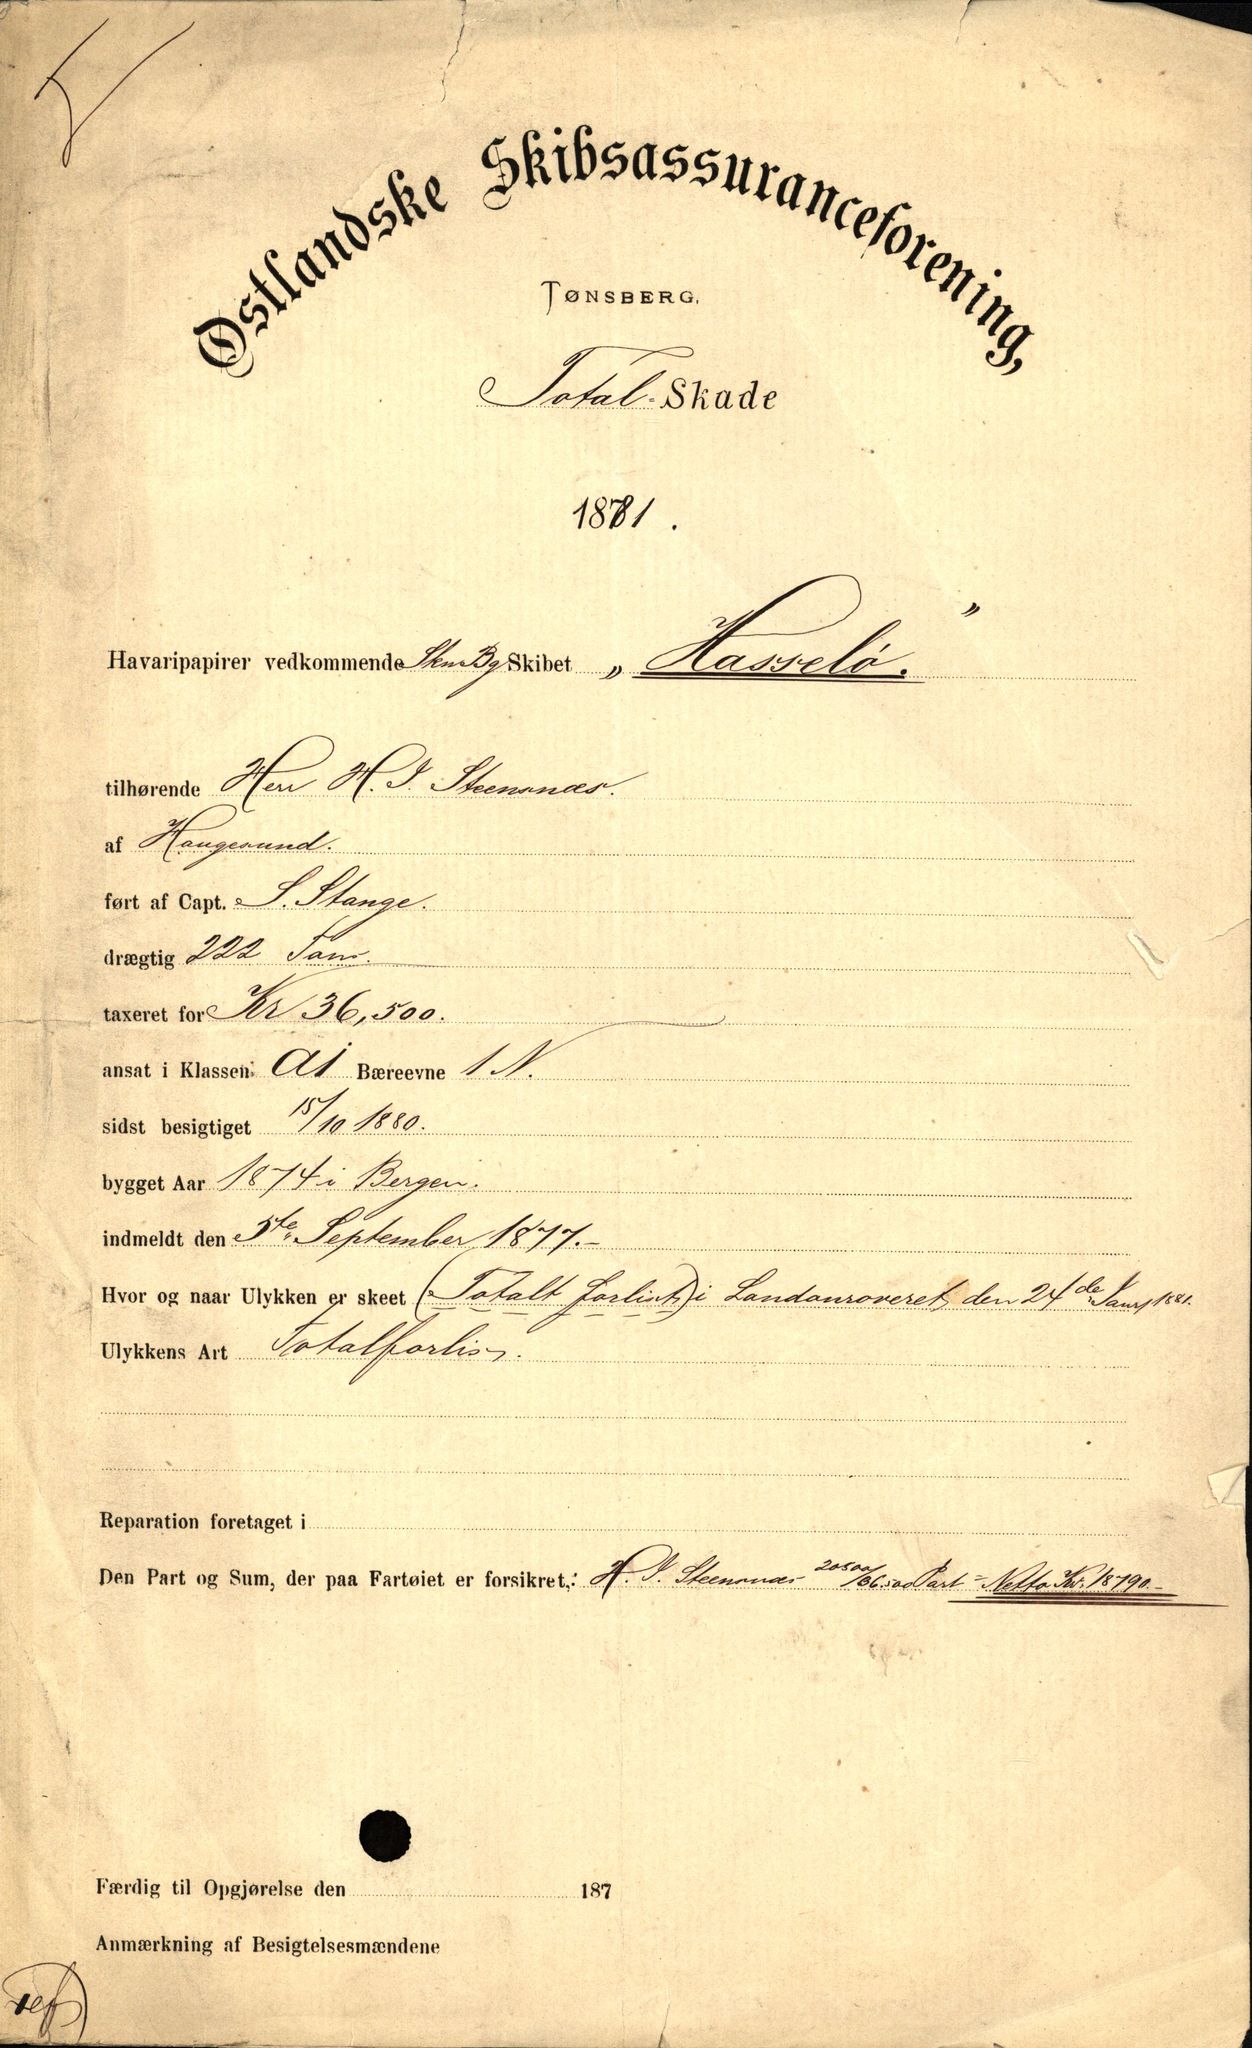 Østlandske Skibsassuranceforening,
TØNSBERG.
Total-Skade
1881.
Havaripapirer vedkommende Skn Bg Skibet „Hasselö."
tilhørende Herr H. J. Steensnæs.
af Haugesund.
ført af Capt. S. Stange.
drægtig 222 Tons.
taxeret for Kr 36,500.
ansat i Klassen: A1 Bæreevne 1 N.
sidst besigtiget 15/10 1880.
bygget Aar 1874 i Bergen.
indmeldt den 5te September 1877.-
Hvor og naar Ulykken er skeet (Totalt forlist) i den 24de Janr 1881.
Ulykkens Art Totalforlis.
Reparation foretaget i
Den Part og Sum, der paa Fartøiet er forsikret,: H. J. Steensnæs 20500/36.500 Part = Netto Kr. 18790.-
Færdig til Opgjørelse den 187
Anmærkning af Besigtelsesmændene